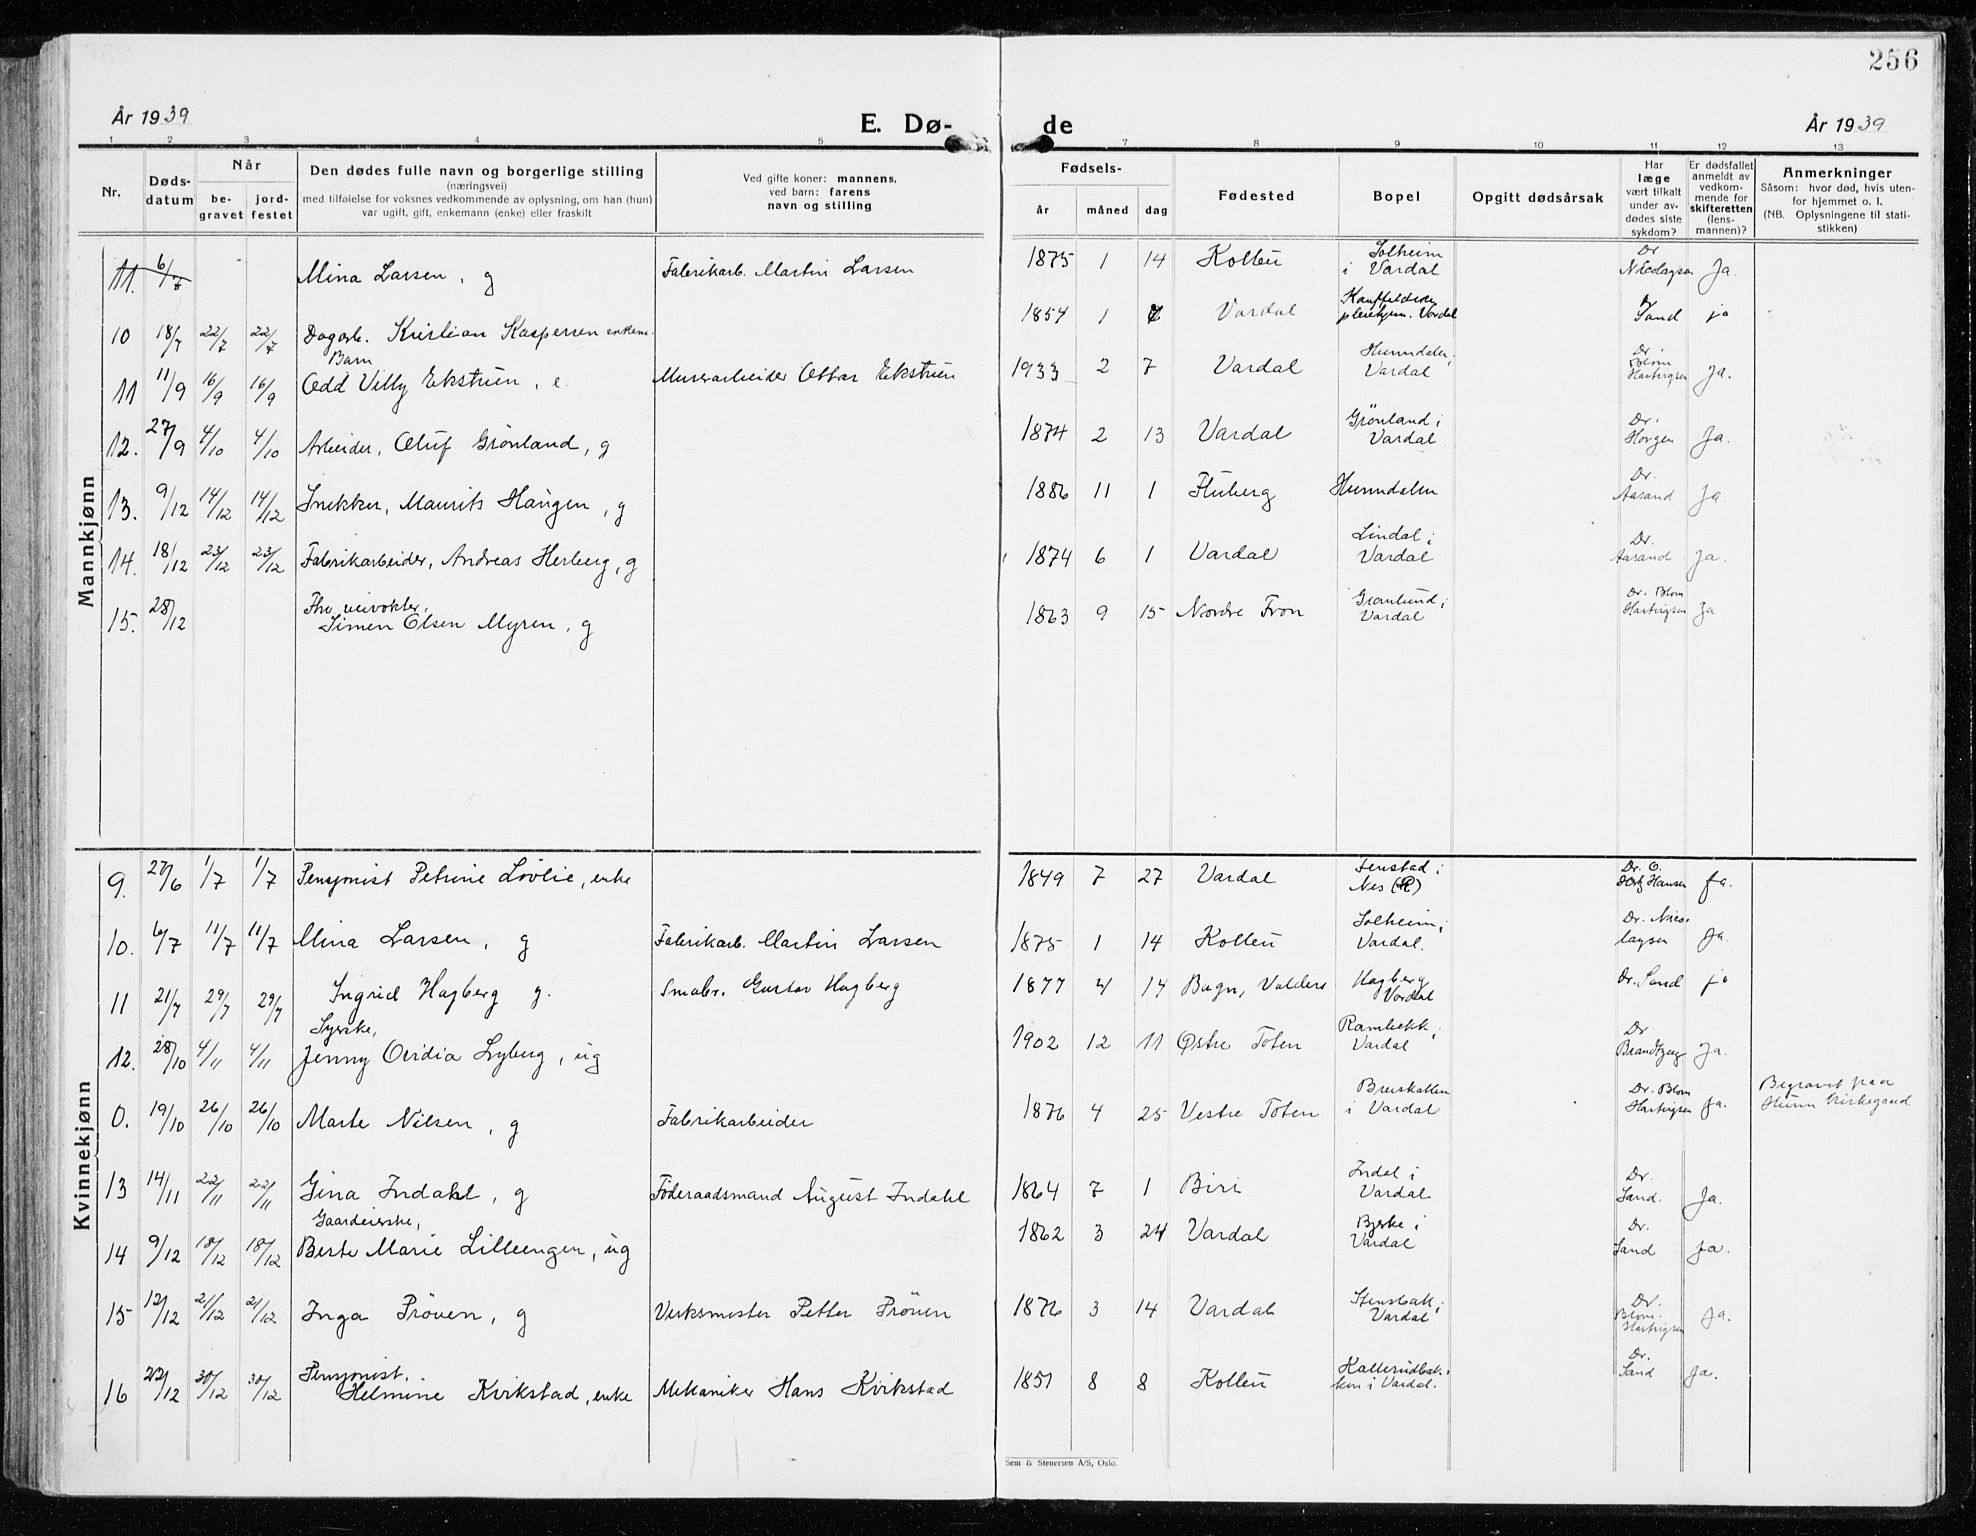 256
År 1939
E. Dø-
de
År 1939
1 2 3 4 5 7 8 9 10 11 12 13
Nr.
Døds-
datum
Når
be-
gravet
jord-
festet
Den dødes fulle navn og borgerlige stilling
(næringsvei)
med tilføielse for voksnes vedkommende av oplysning, om han (hun)
var ugift, gift, enkemann (enke) eller fraskilt
Ved gifte koner: mannens,
ved barn: farens
navn og stilling
Fødsels-
år
måned
dag
Fødested
Bopel
Opgitt dødsårsak
Har
læge
vært tilkalt
under av-
dødes siste
sykdom?
Er dødsfallet
anmeldt av
vedkom-
mende for
skifteretten
(lens-
mannen)?
Anmerkninger
Såsom: hvor død, hvis uten-
for hjemmet o. l.
(NB. Oplysningene til stati-
stikken)
Mannkjønn
11. 6/7 Mina Larsen, g Fabrikarb. Martin Larsen 1875 1 14 Kolbu Solheim
i Vardal Dr
Nicolaysen Ja.
10 18/7 22/7 22/7 Dagarb. Kristian Kaspersen enkem. 1854 1 Vardal
pleiehjem. Vardal Sand ja
Barn
11 11/9 16/9 16/9 Odd Villy Ekstrøm, e. Murerarbeider Ottar Ekstrøm 1933 2 7 Vardal Hunndalen,
Vardal Dr.
Blom
Hartvigsen Ja.
12. 27/9 4/10 4/10 Arbeider, Oluf Grönland, g 1874 2 13 Vardal Grönland i
Vardal Dr.
Horgen Ja.
13. 9/12 14/12 14/12 Snekker, Maurits Haugen, g 1886 11 1 Fluberg Hunndalen Dr.
Aasand Ja.
14. 18/12 23/12 23/12 Fabrikarbeider, Andreas Herberg, g 1874 6 1 Vardal Lindal i
Vardal Dr.
Aasand Ja.
15. 28/12 Fhv. veivokter,
Simen Olsen Myren, g 1863 9 15 Nordre Fron Granlund i
Vardal Dr. Blom
Hartvigsen Ja
Kvinnekjønn
9. 27/6 1/7 1/7 Pensjonist Petrine Lövlie, enke 1849 7 27 Vardal Tenstad i
Nes (R) Dr. O.
Hansen Ja.
10. 6/7 11/7 11/7 Mina Larsen, g Fabrikarb. Martin Larsen 1875 1 14 Kolbu Solheim i
Vardal. Dr. Nico-
laysen Ja.
11 21/7 29/7 29/7 Ingrid Hagberg g. Småbr. Gustav Hagberg 1877 4 14 Bagn, Valdres Hagberg
Vardal Dr. Sand ja
Syerske,
12. 28/10 4/11 4/11 Jenny Ovidia Lyberg, ug 1902 12 11 Østre Toten Rambekk i
Vardal Dr.
Brandtzæg Ja.
0. 19/10 26/10 26/10 Marte Nilsen, g Fabrikarbeider 1876 4 25 Vestre Toten Breiskallen
i Vardal Dr. Blom
Hartvigsen Ja. Begravet paa
Hunn kirkegaard.
13 14/11 22/11 22/11 Gina Indahl, g Föderaadsmand August Indahl 1864 7 1 Biri Indal i
Vardal Dr.
Sand. Ja.
Gaardeierske,
14 9/12 18/12 18/12 Berte Marie Lilleengen, ug 1862 3 24 Vardal Bjerke i
Vardal Dr.
Sand Ja.
15 12/12 21/12 21/12 Inga Pröven, g Verksmester Petter Pröven 1876 3 14 Vardal Stensbak i
Vardal Dr.
Blom-
Hartvigsen Ja.
Pensjonist,
16 22/12 30/12 30/12 Helmine Kvikstad, enke Mekaniker Hans Kvikstad 1851 8 8 Kolbu Kallerudbak-
ken i Vardal. Dr.
Sand Ja.
Sem & Stenersen A/S, Oslo.